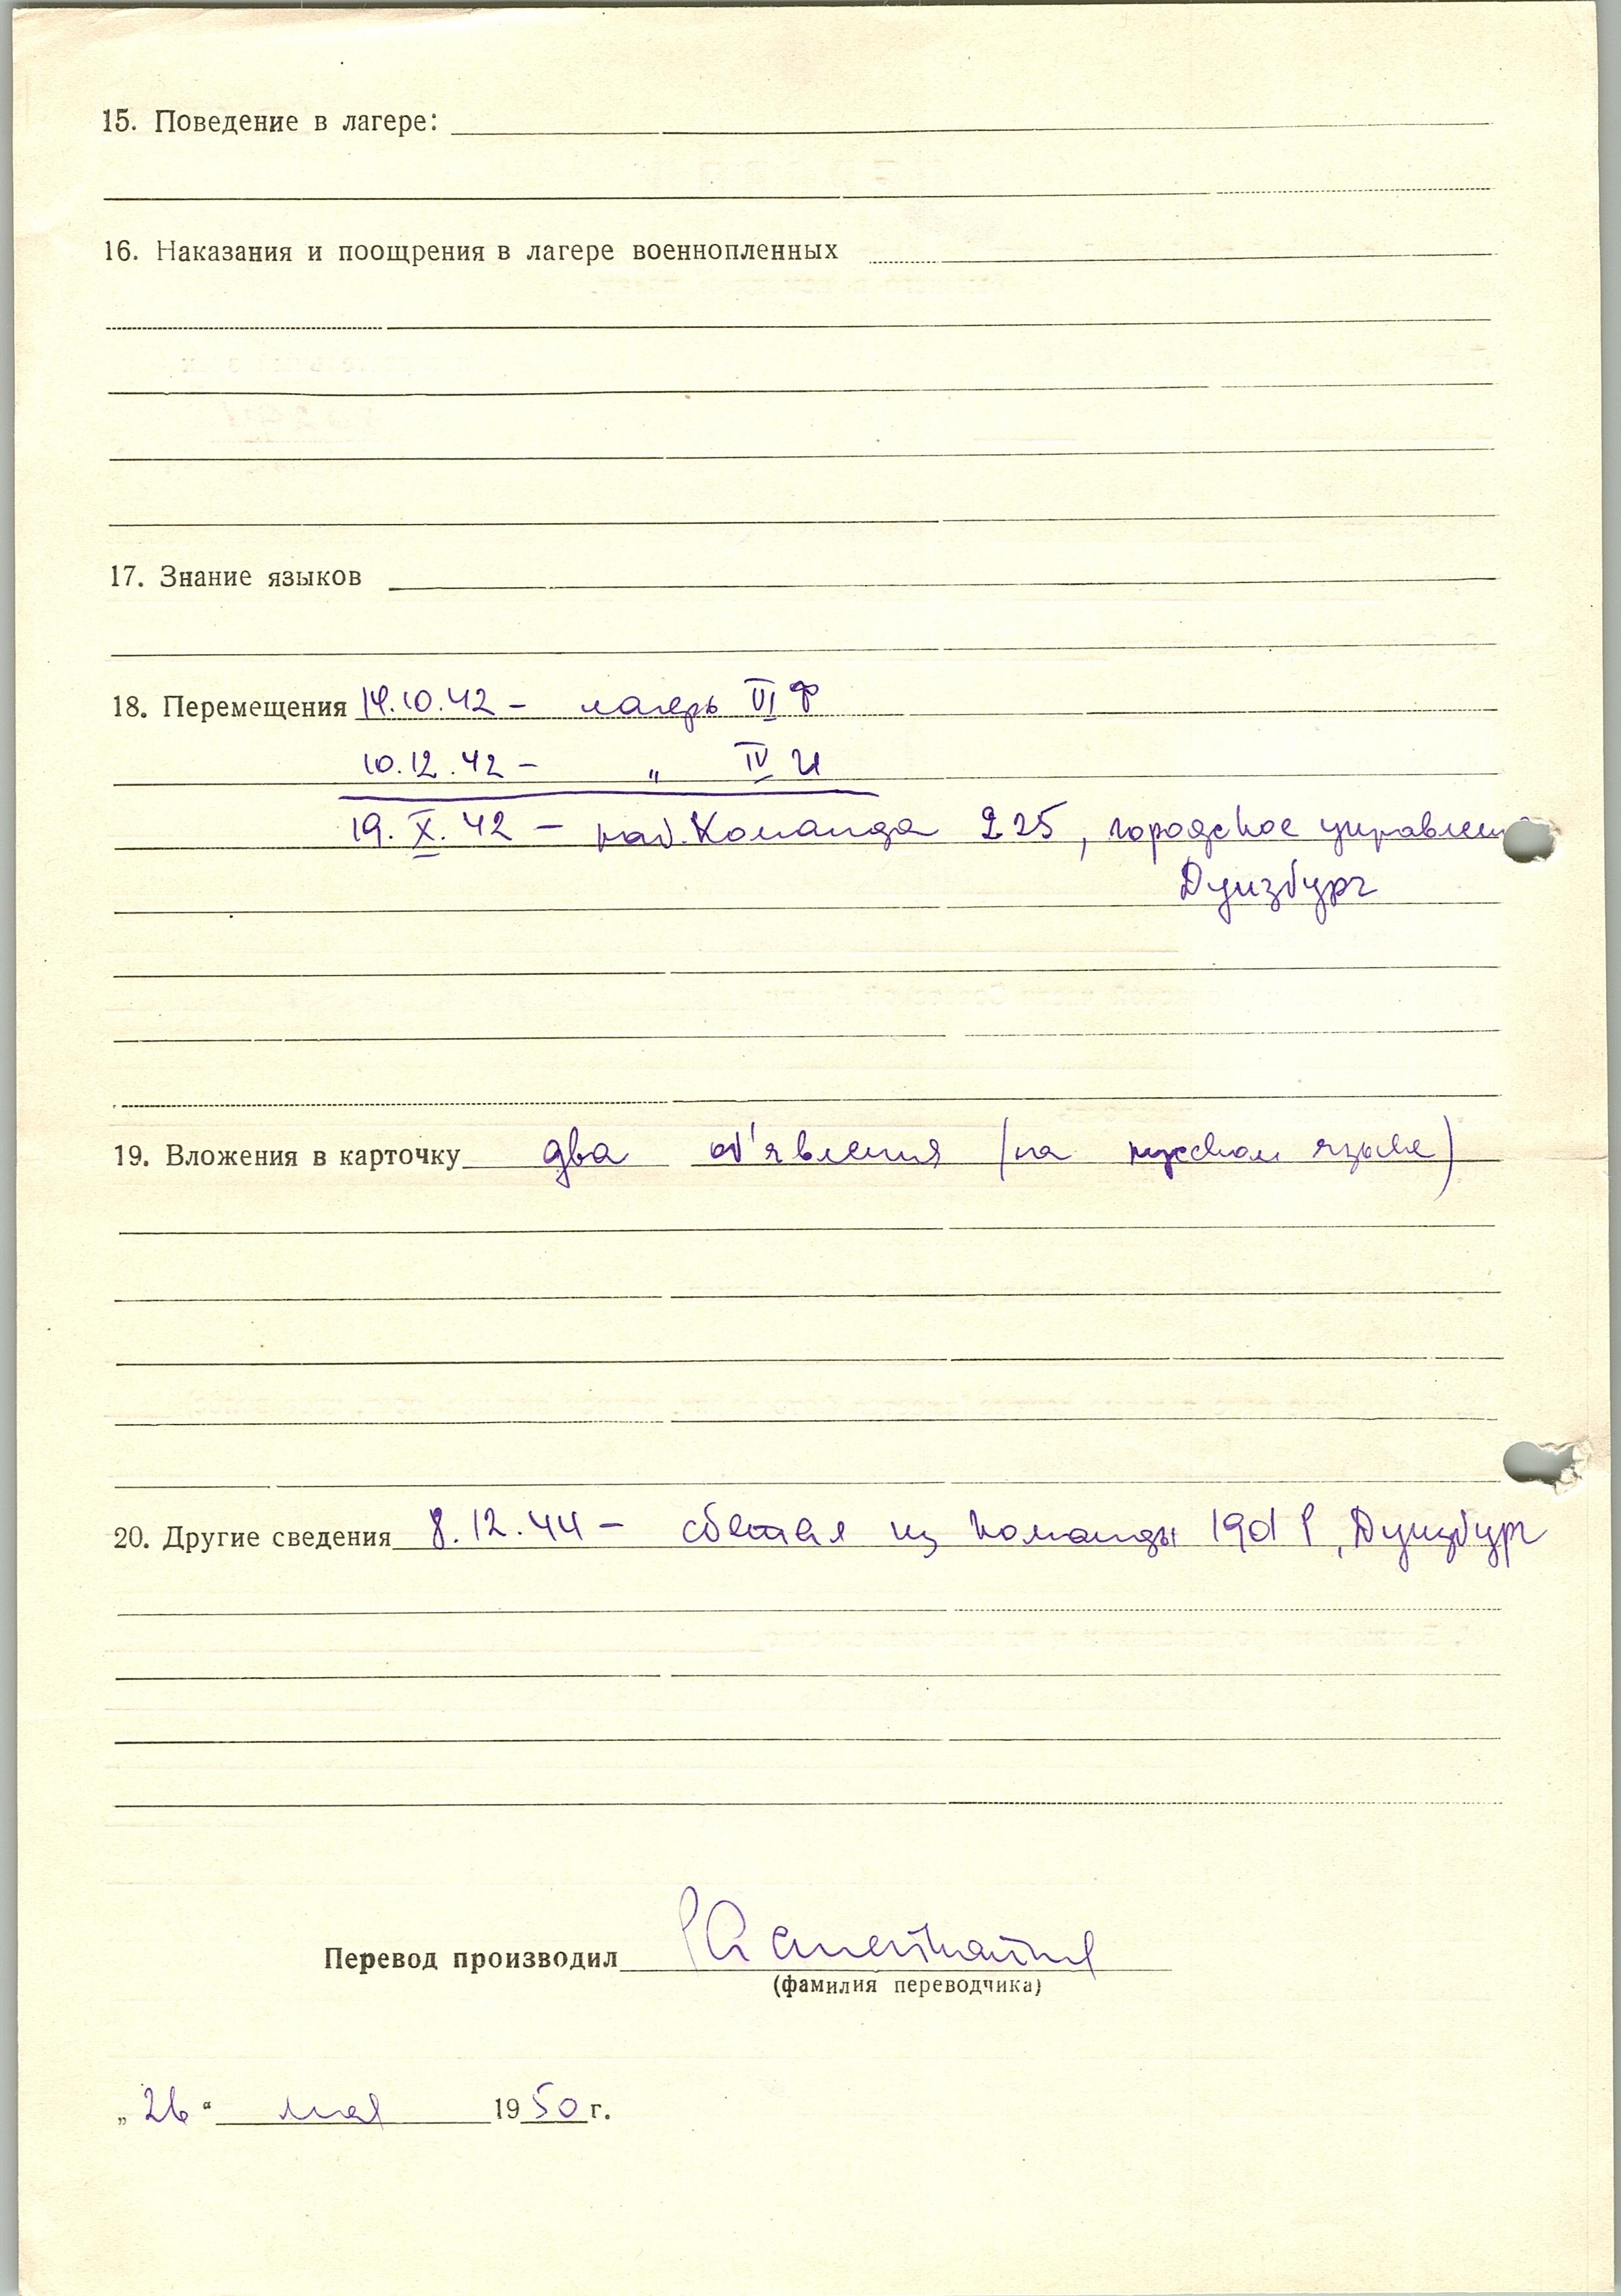 15. Поведение в лагере:
16. Наказания и поощрения в лагере военнопленных
17. Знание языков
18. Перемещения 14.10.42 – лагерь VI Ф
10.12.42 – " IV
19. X. 42 – раб. Команда 225, городское управление
Дуизбург
19. Вложения в карточку два об'явления (на русском языке)
20. Другие сведения 8.12.44 – сбежал из команды Дуизбург
Перевод производил
(фамилия переводчика)
„26“ мая 1950 г.